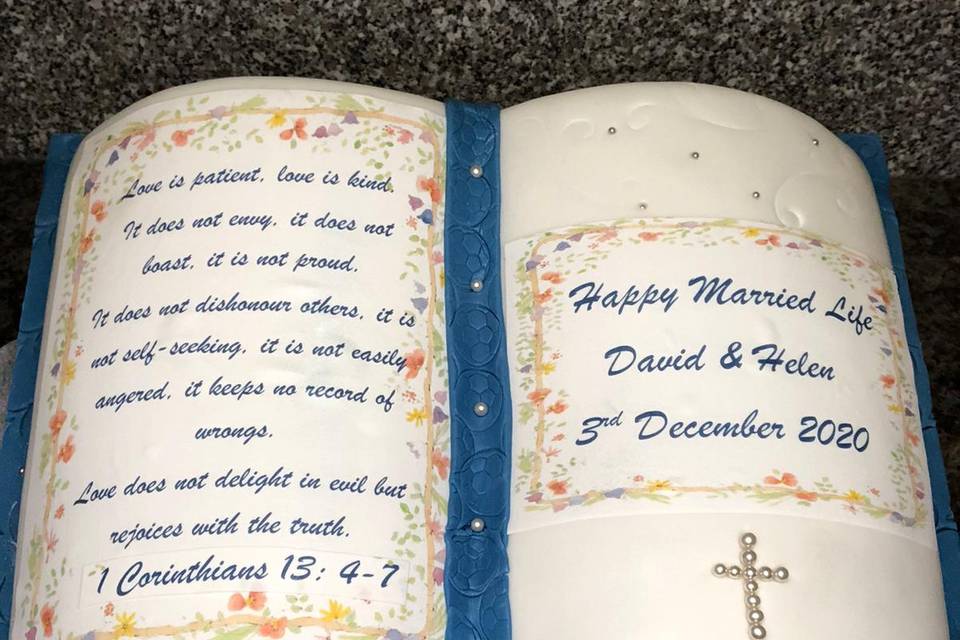 Love is patient, love is kind.
It does not envy, it does not
boast, it is not proud.
It does not dishonour others, it is
not self-seeking, it is not easily
angered, it keeps no record of
wrongs.
Love does not delight in evil but
rejoices with the truth.
1 Corinthians 13: 4-7
Happy Married Life
David & Helen
3rd December 2020